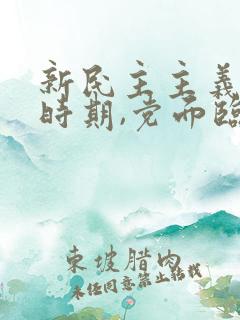 新民主主義
時期,党面臨
東坡腊肉
未经同意禁止转载